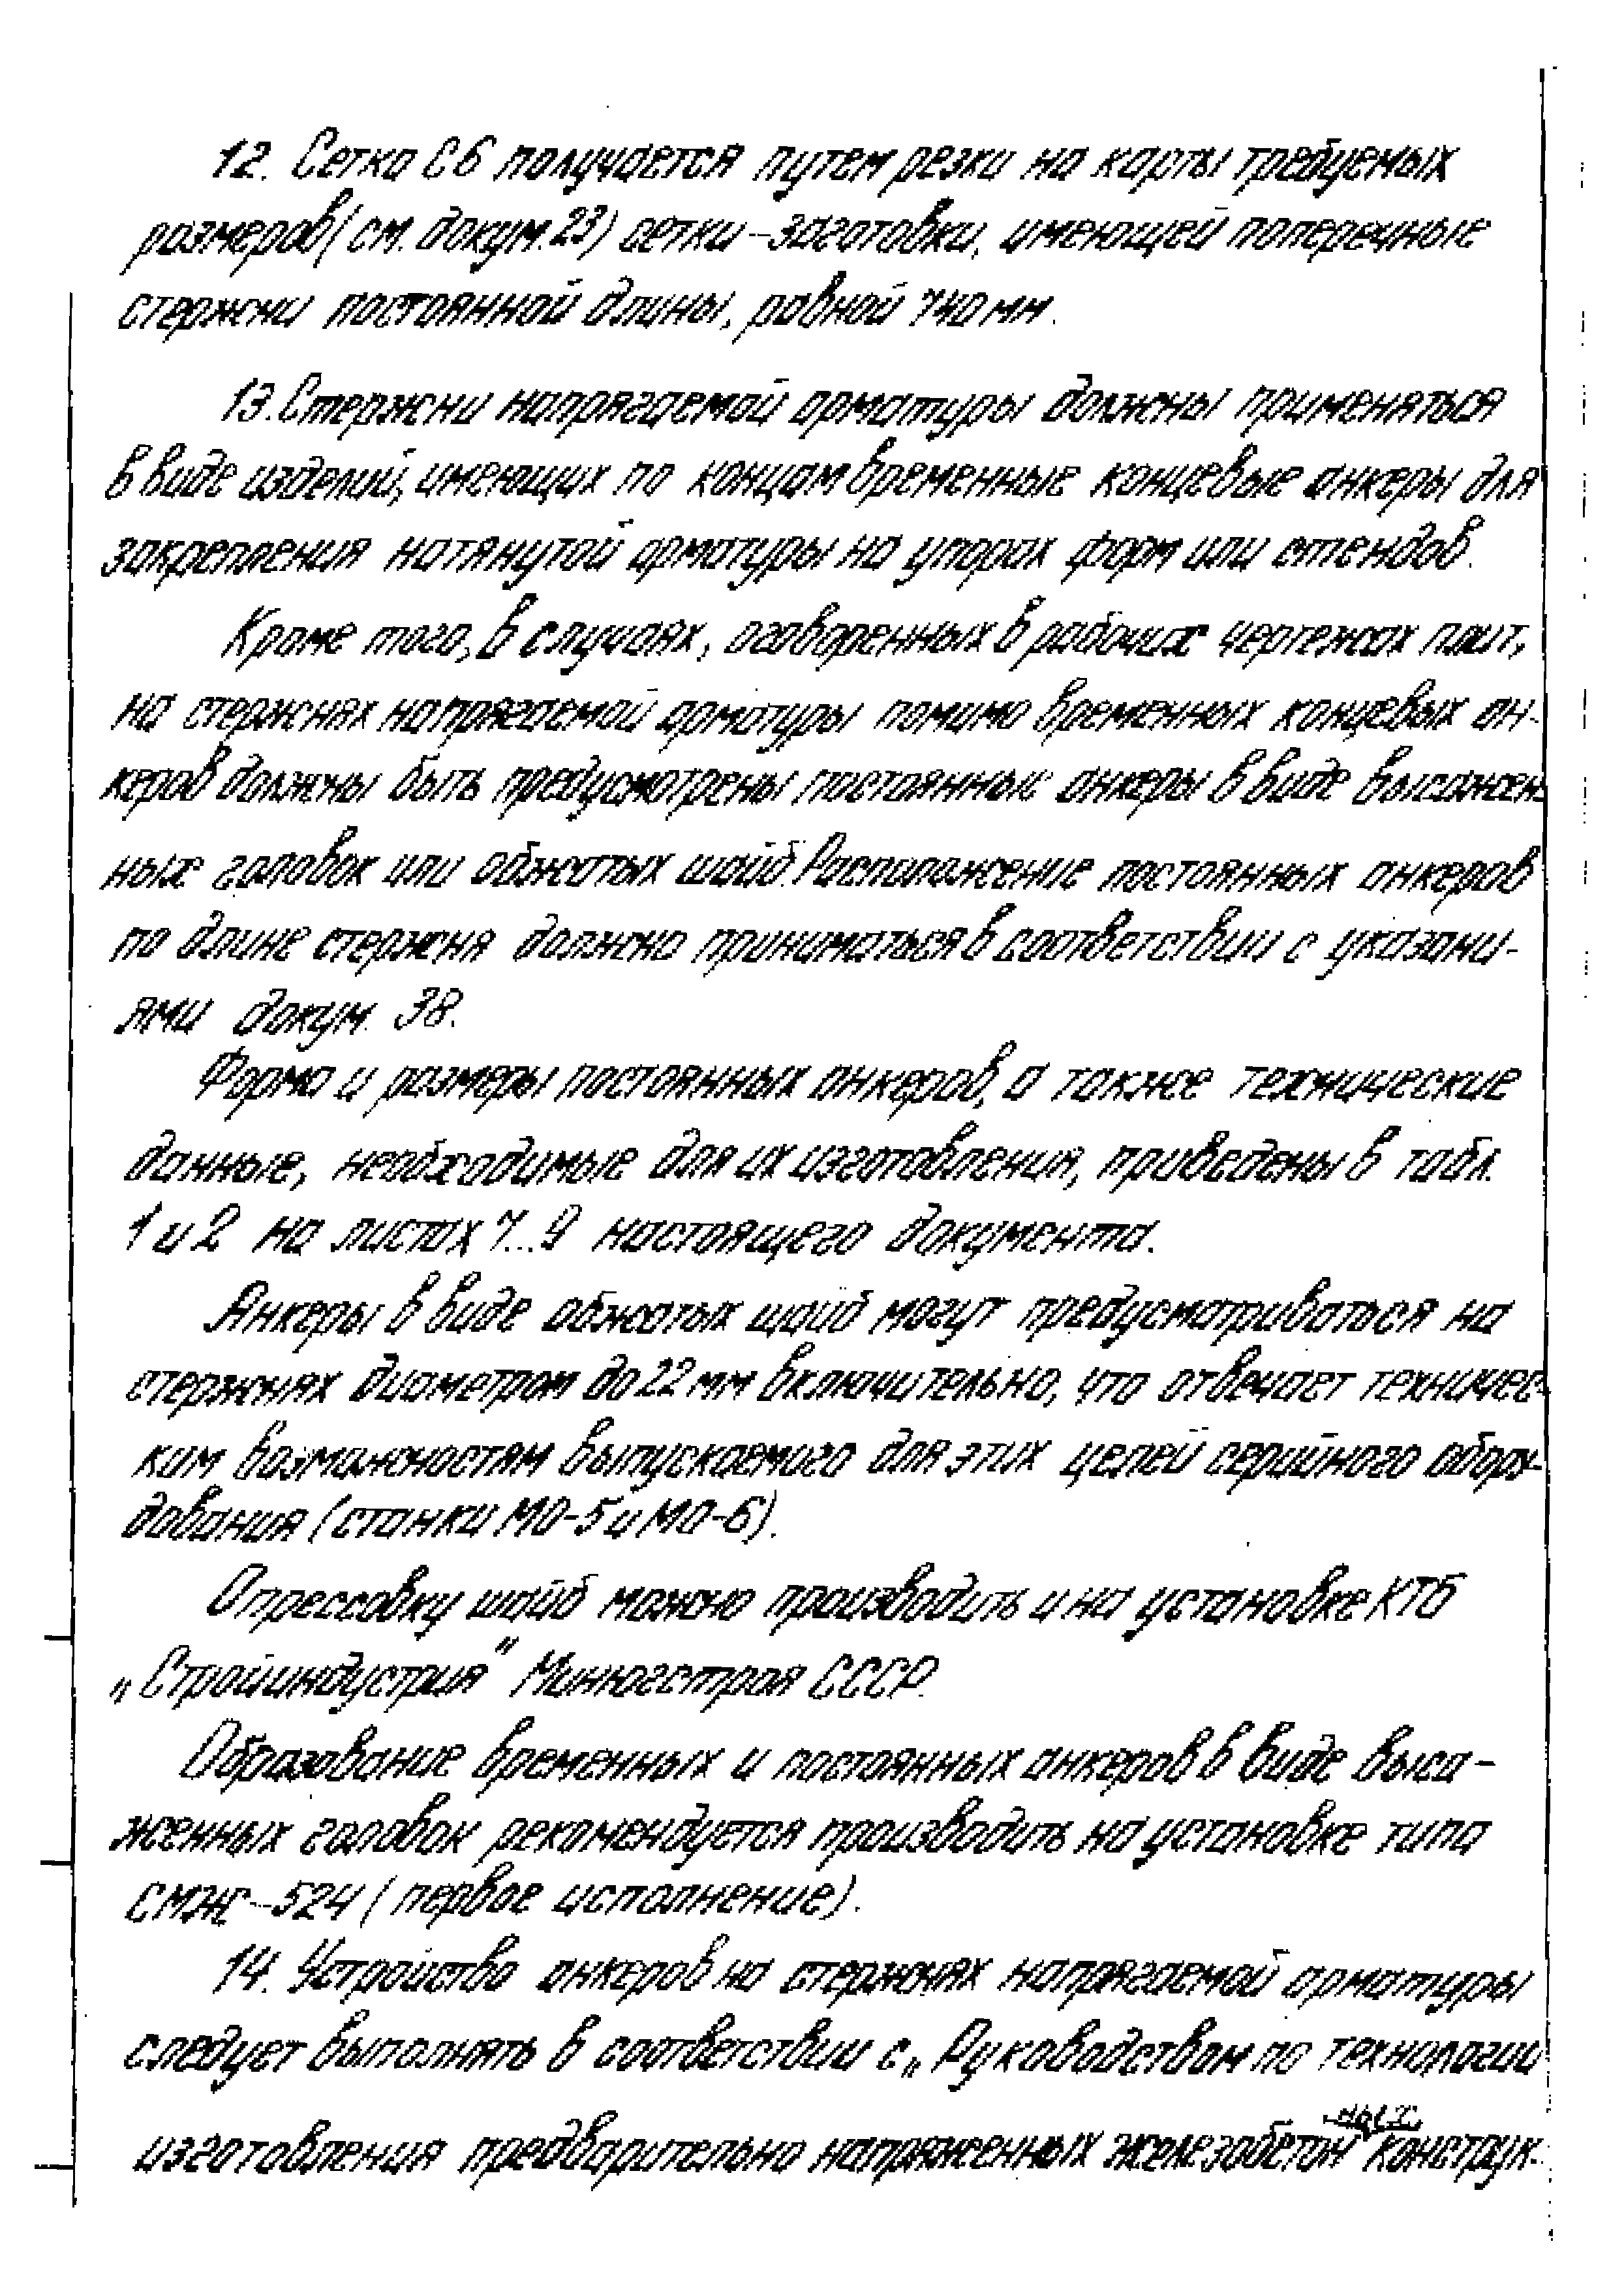 12. Сетка С6 получается путем резки на карты требуемых
размеров (см. докум. 23) сетки-заготовки, имеющей поперечные
стержни постоянной длины, равной 740 мм.
13. Стержни напрягаемой арматуры должны применяться
в виде изделий, имеющих по концам временные концевые анкеры для
закрепления натянутой арматуры на упорах форм или стендов.
Кроме того, в случаях, оговоренных в рабочих чертежах плит,
на стержнях напрягаемой арматуры помимо временных концевых ан-
керов должны быть предусмотрены постоянные анкеры в виде высажен-
ных головок или обжатых шайб. Расположение постоянных анкеров
по длине стержня должно приниматься в соответствии с указани-
ями докум. 38.
Форма и размеры постоянных анкеров, а также технические
данные, необходимые для их изготовления, приведены в табл.
1 и 2 на листах 7...9 настоящего документа.
Анкеры в виде обжатых шайб могут предусматриваться на
стержнях диаметром до 22 мм включительно, что отвечает техничес-
ким возможностям выпускаемого для этих целей серийного обору-
дования (станки МО-5 и МО-6).
Опрессовку шайб можно производить и на установке КТБ
„Стройиндустрия" Минюгстроя СССР.
Образование временных и постоянных анкеров в виде выса-
женных головок рекомендуется производить на установке типа
СМЖ-524 (первое исполнение).
14. Устройство анкеров на стержнях напрягаемой арматуры
следует выполнять в соответствии с „Руководством по технологии
изготовления предварительно напряженных железобетонных конструк-